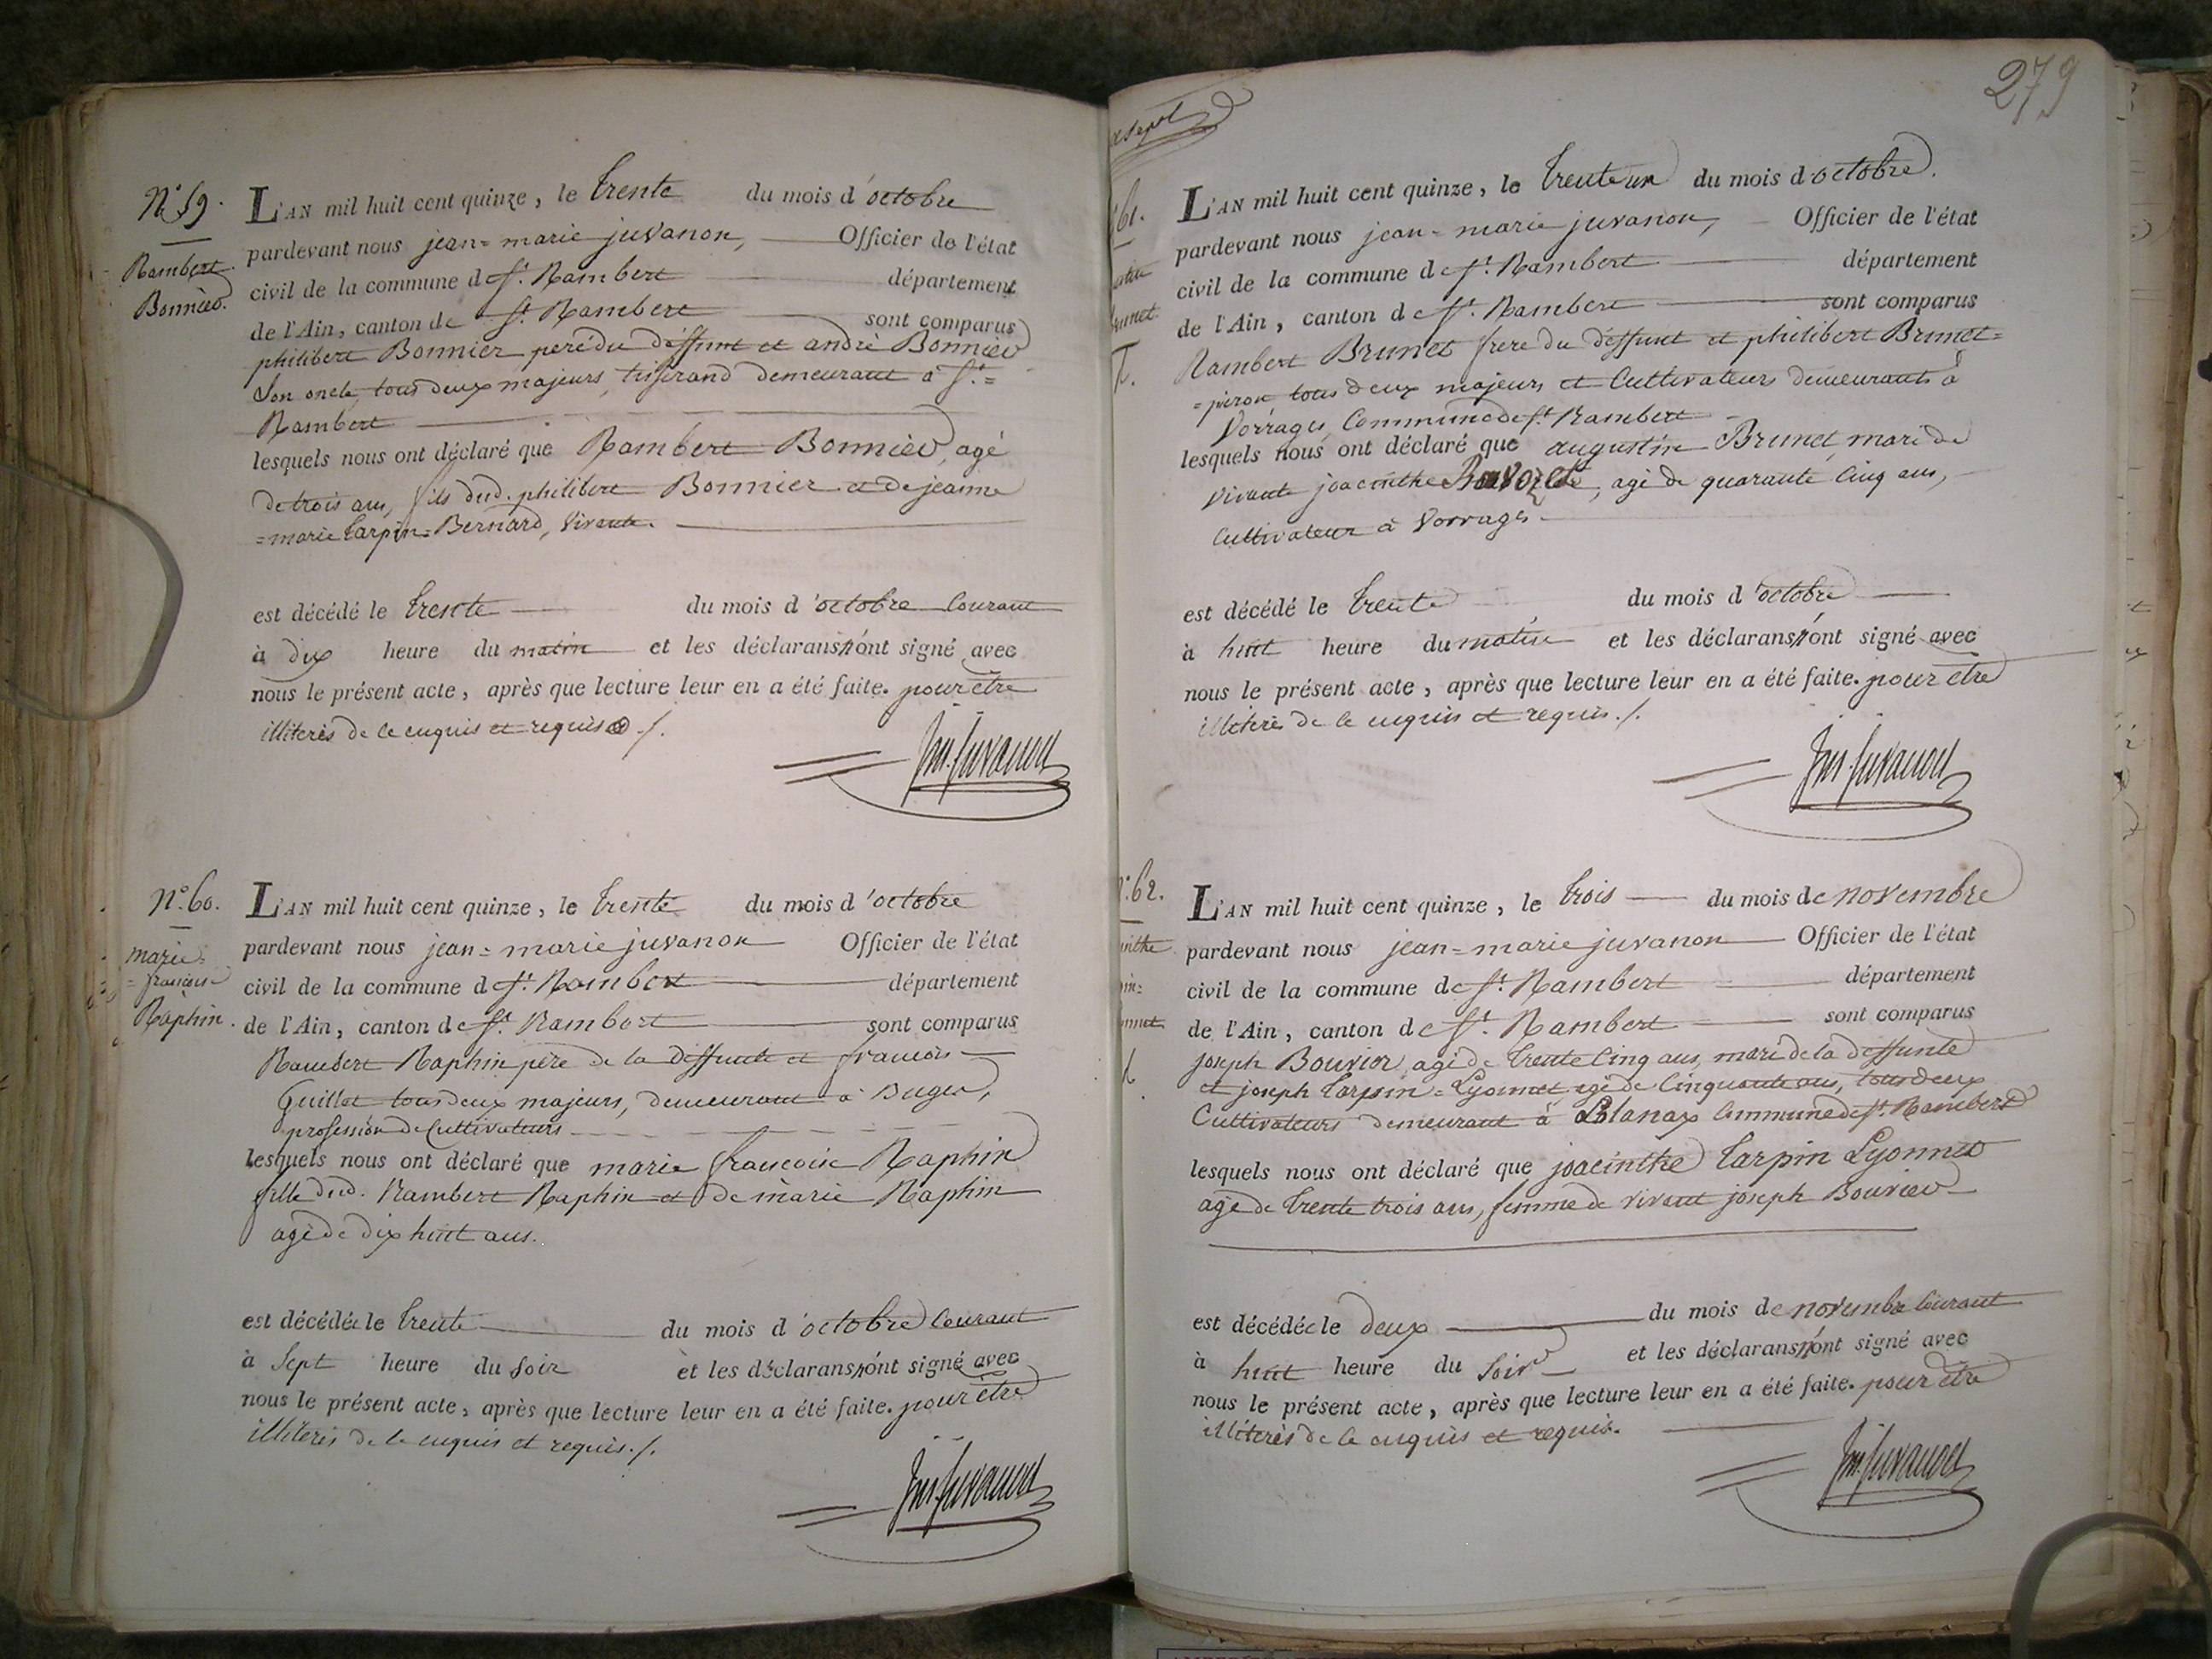 N.° 59.
Rambert
Bonnier.
L'AN mil huit cent quinze, le trente du mois d'octobre
pardevant nous jean=marie juvanon, Officier de l'état
civil de la commune de St. Rambert département
de l'Ain, canton de St. Rambert sont comparus
philibert Bonnier pere du deffunt et andrè Bonnier
Son oncle, tous deux majeurs, tisserand demeurant à St.=
Rambert
lesquels nous ont déclaré que Rambert Bonnier, agé
de trois ans, fils dud. philibert Bonnier et de jeanne
=marie tarpin=Bernard, vivante.
est décédé le trente du mois d'octobre Courant
à dix heure du matin et les déclarans n'ont signé avec
nous le présent acte, après que lecture leur en a été faite. pour être
illiterés de ce enquis et requis ./.
Jm. Juvanon
N.° 60.
marie
=francoise
Raphin.
L'AN mil huit cent quinze, le trente du mois d'octobre
pardevant nous jean=marie juvanon Officier de l'état
civil de la commune de St. Rambert département
de l'Ain, canton de St. Rambert sont comparus
Rambert Raphin père de la deffunte et francois
Guillot tous deux majeurs, demeurant à Buges,
profession de Cultivateurs
lesquels nous ont déclaré que marie francoise Raphin
fille dud. Rambert Raphin et de marie Raphin
agé de dix huit ans.
est décédée le trente du mois d'octobre Courant
à Sept heure du soir et les déclarans n'ont signé avec
nous le présent acte, après que lecture leur en a été faite. pour être
illiterés de ce enquis et requis ./.
Jm. Juvanon
279
61.
L'AN mil huit cent quinze, le trente un du mois d'octobre.
pardevant nous jean=marie juvanon, Officier de l'état
civil de la commune de St. Rambert département
de l'Ain, canton de St. Rambert sont comparus
Rambert Brunet frere du deffunt et philibert Brunet=
=piron tous deux majeurs et Cultivateurs demeurants à
Vorrages, Commune de St. Rambert
lesquels nous ont déclaré que augustin Brunet, mari de
vivante joacinthe, agé de quarante Cinq ans,
Cultivateur à Vorrages
est décédé le trente du mois d'octobre
à huit heure du matin et les déclarans n'ont signé avec
nous le présent acte, après que lecture leur en a été faite. pour être
illiterés de ce enquis et requis ./.
Jm. Juvanon
N.° 62.
L'AN mil huit cent quinze, le trois du mois de novembre
pardevant nous jean=marie juvanon Officier de l'état
civil de la commune de St. Rambert département
de l'Ain, canton de St. Rambert sont comparus
joseph Bouvier, agé de trente Cinq ans, mari de la deffunte
et joseph tarpin=Lyonnet, agé de Cinquante ans, tous deux
Cultivateurs demeurant à Blanas Commune de St. Rambert
lesquels nous ont déclaré que joacinthe tarpin Lyonnet
agé de trente trois ans, femme de vivant joseph Bouvier
est décédée le deux du mois de novembre Courant
à huit heure du Soir et les déclarans n'ont signé avec
nous le présent acte, après que lecture leur en a été faite. pour être
illiterés de ce enquis et requis.
Jm. Juvanon